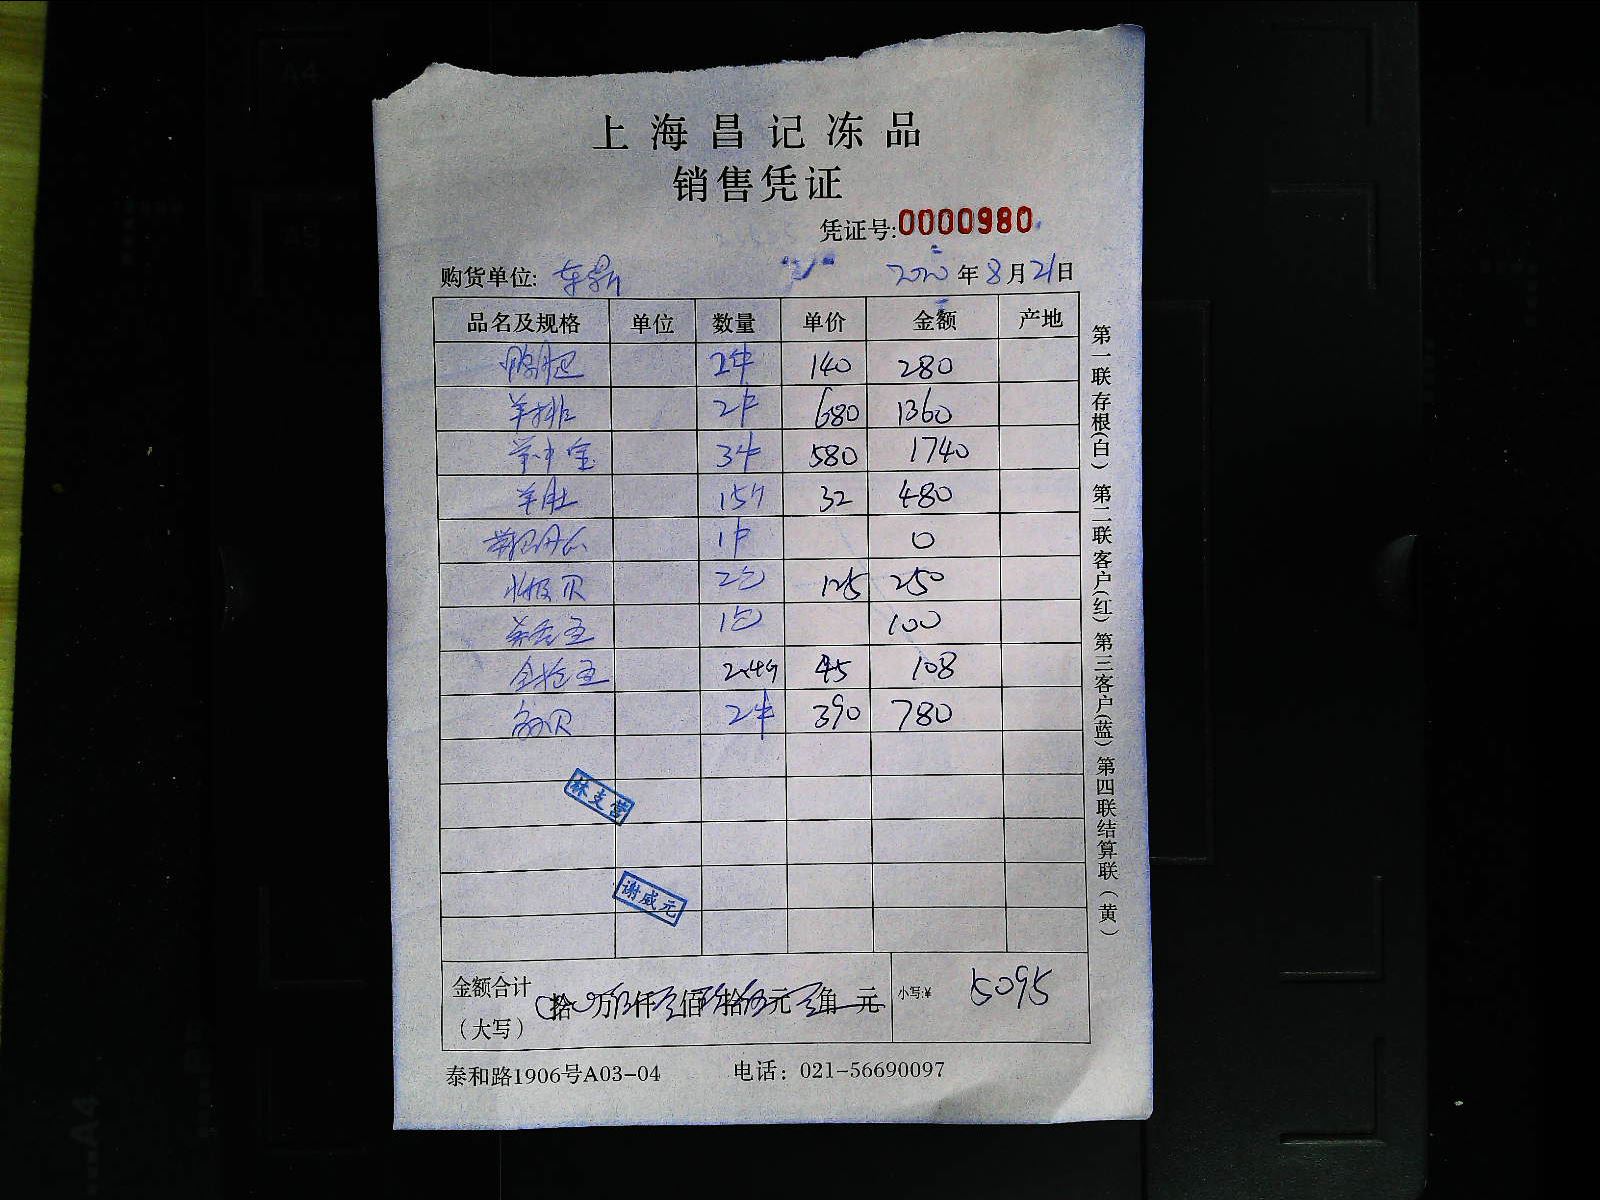 上海昌记冻品
销售凭证
凭证号:0000980
购货单位: 东鼎 2020年8月21日
品名及规格 单位 数量 单价 金额 产地
鸭胗 2件 140 280
羊排 2件 680 1360
3件 580 1740
羊肚 15斤 32 480
1件 0
水极贝 2包 125 250
1包 100
2.4斤 45 108
2件 390 780
林支营
谢威元
金额合计
（大写） 拾 万伍仟零佰玖拾伍元零角 元 小写:¥ 5095
泰和路1906号A03-04 电话：021-56690097
第一联存根(白) 第二联客户(红) 第三客户(蓝) 第四联结算联(黄)